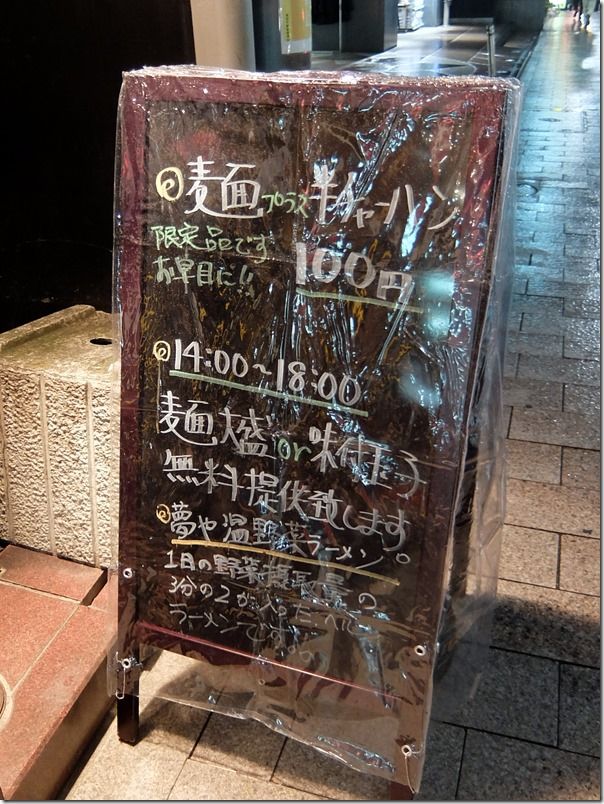 麺プラス半チャーハン
限定品です
お早目に!!
100円
14:00~18:00
麺大盛or味付玉子
無料提供致します
夢や温野菜ラーメン。
1日の野菜摂取量の
3分の2が入ったヘルシー
ラーメンです